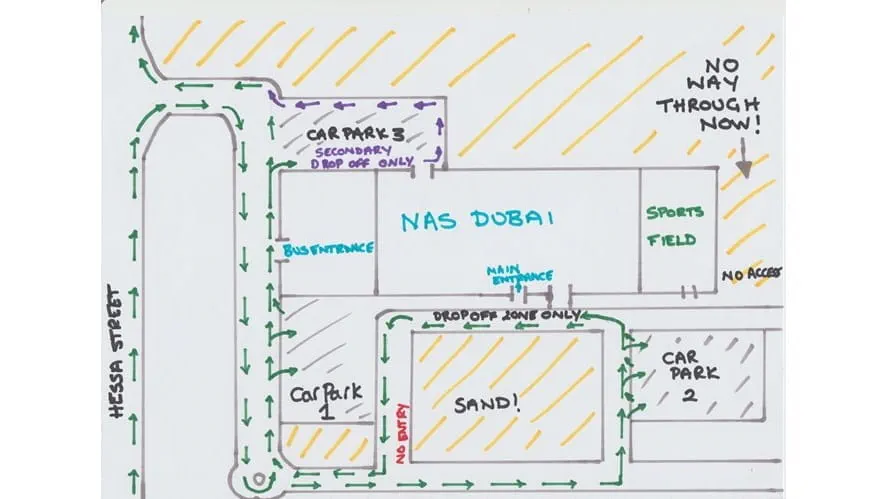 NO
WAY
THROUGH
NOW!
CAR PARK 3
SECONDARY
DROP OFF ONLY
NAS DUBAI
SPORTS
FIELD
BUS ENTRANCE
MAIN
ENTRANCE
NO ACCESS
DROP OFF ZONE ONLY
HESSA STREET
Car Park
1
NO ENTRY
SAND!
CAR
PARK
2